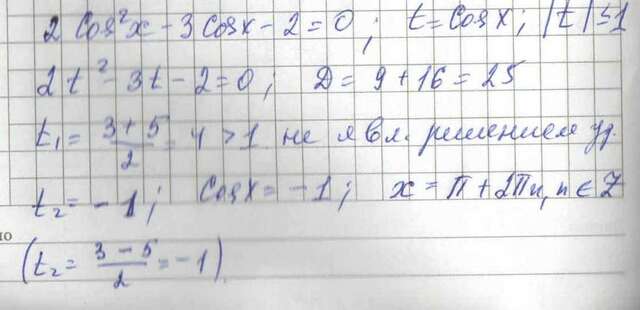 2 cos²x - 3 cos x - 2 = 0; t = cos x; |t| ≤ 1
2t² - 3t - 2 = 0; D = 9 + 16 = 25
t₁ = (3 + 5)/2 = 4 > 1 не явл. решением ур.
t₂ = -1; cos x = -1; x = π + 2πn, n ∈ Z
(t₂ = (3 - 5)/2 = -1)